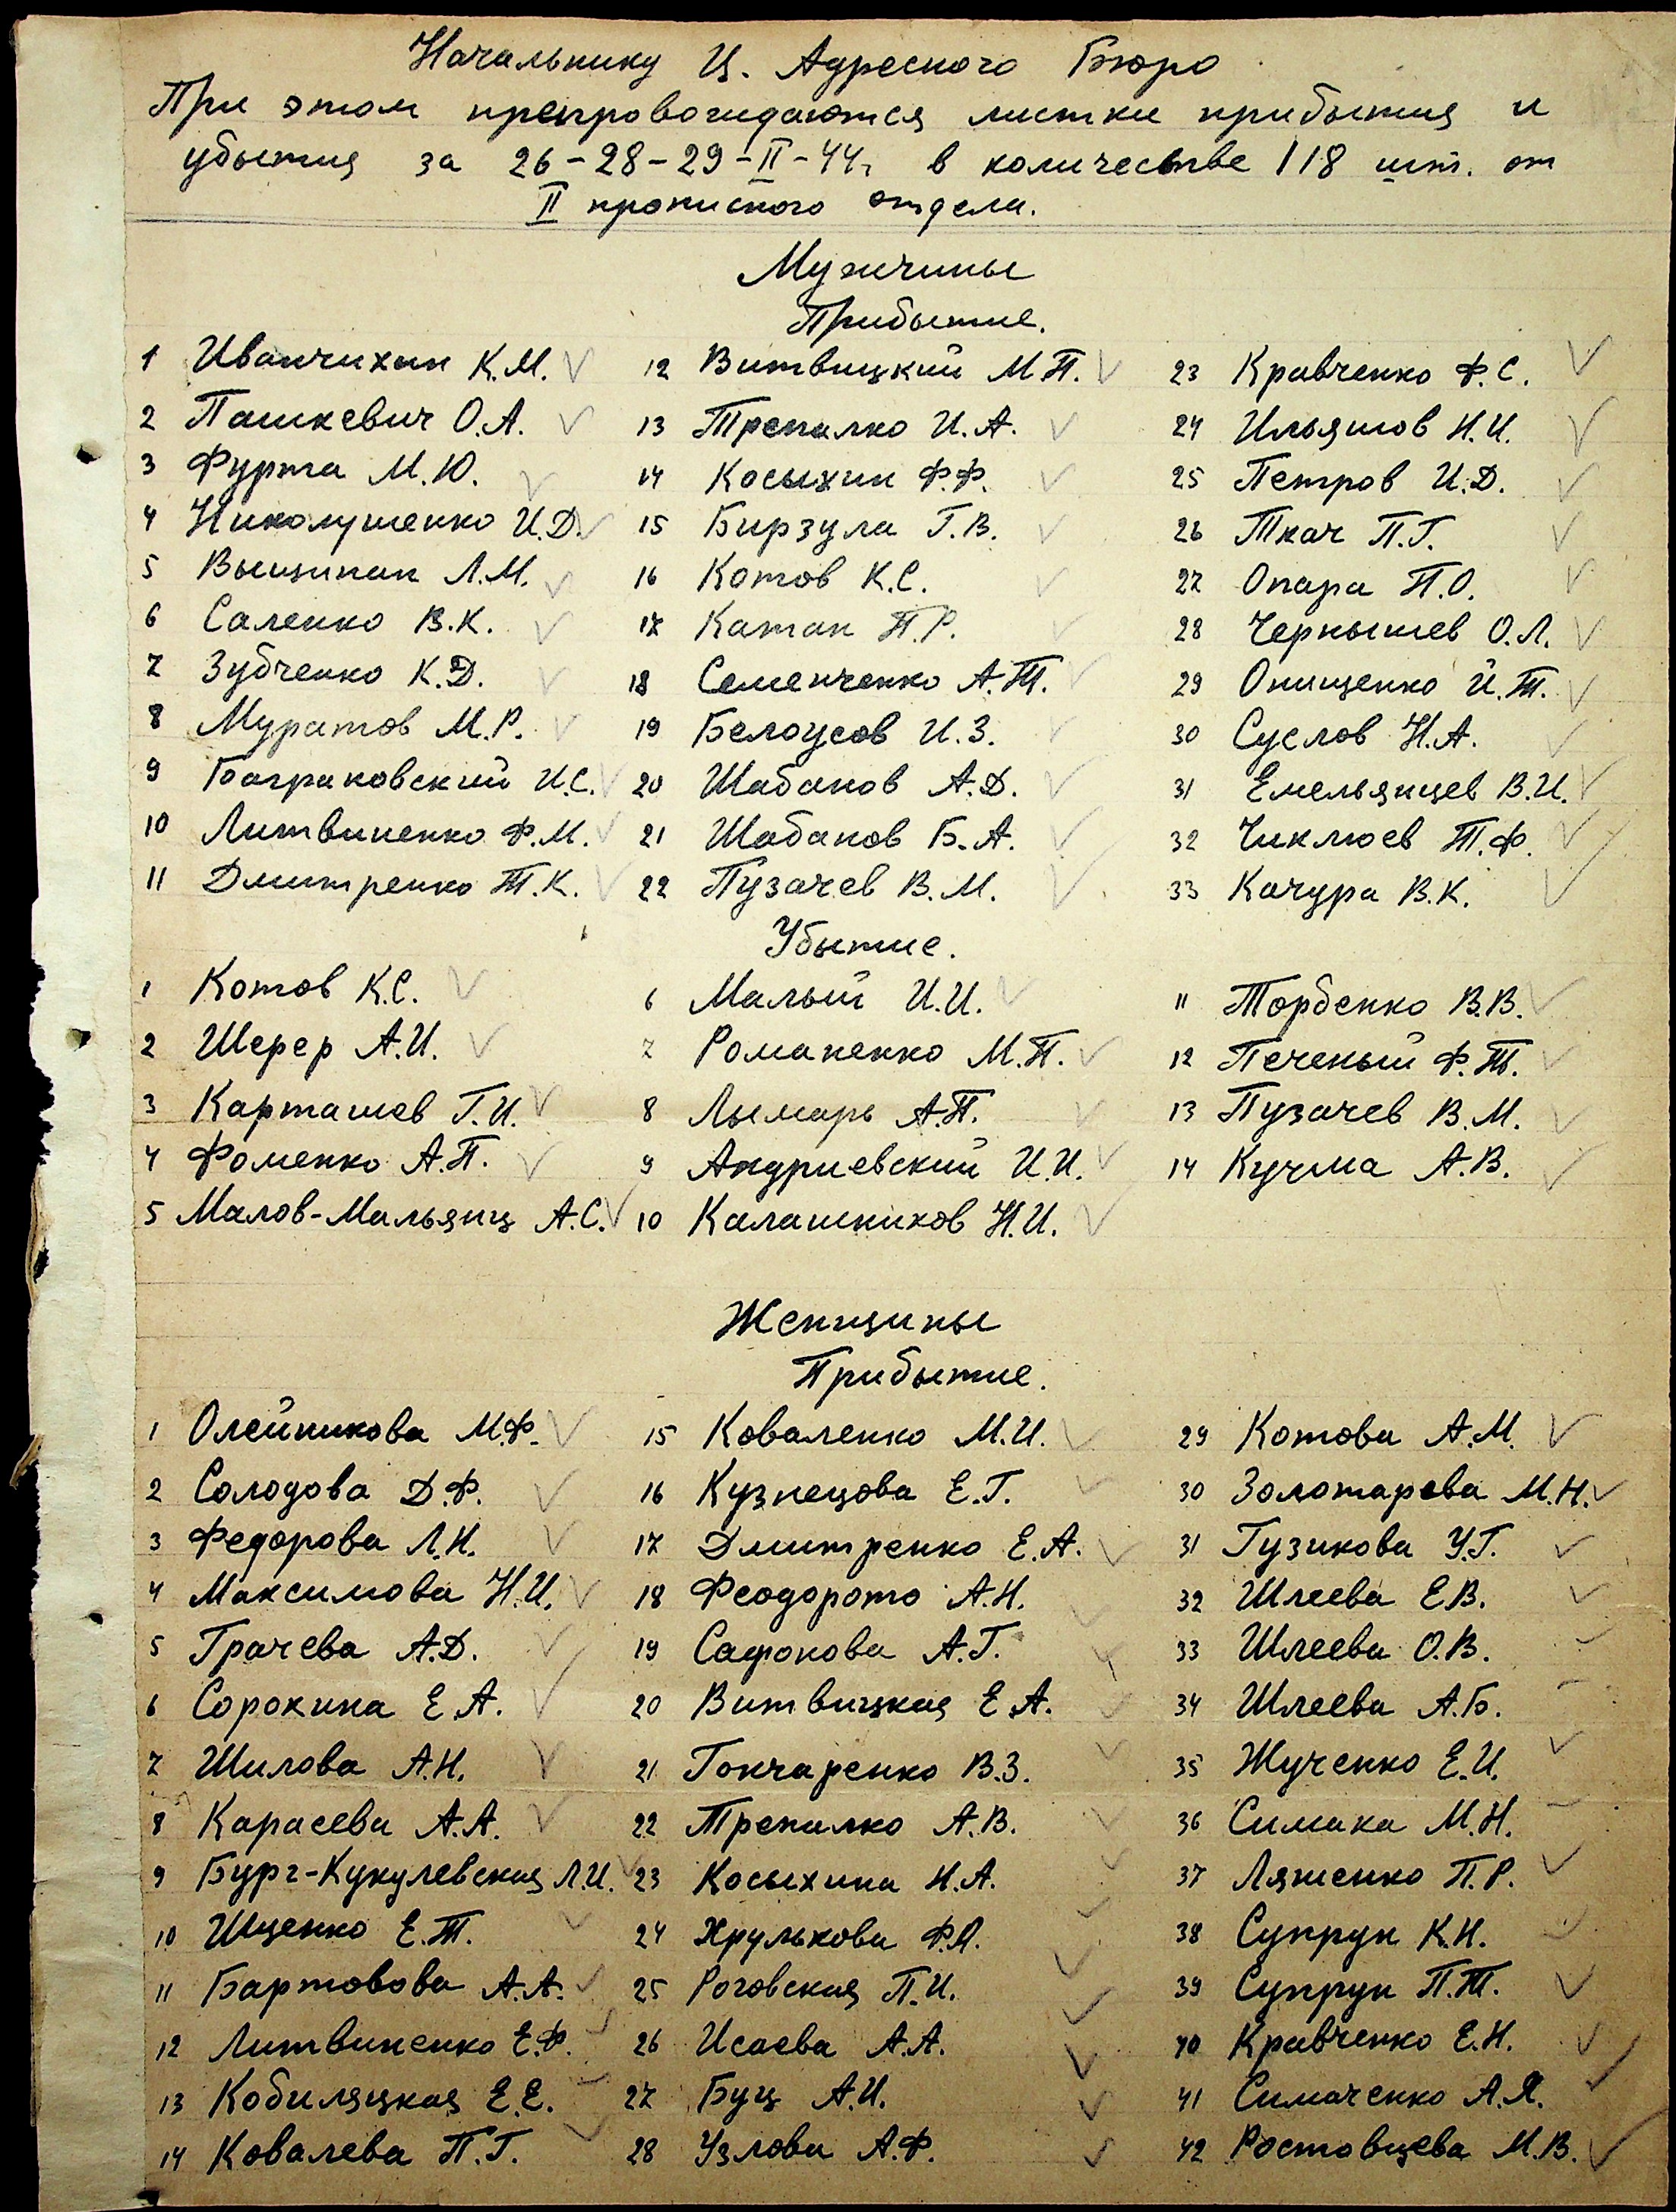 Начальнику Ц. Адресного Бюро
При этом препровождаются листки прибытия и
убытия за 26-28-29-II-44г. в количестве 118 шт. от
II прописного отдела.
Мужчины
Прибытие.
1 Иванчихин К.М.
2 Пашкевич О.А.
3 Фурта М.Ю.
4 Николушенко И.Д.
5 Выщипан Л.М.
6 Саленко В.К.
7 Зубченко К.Д.
8 Муратов М.Р.
9 Баграновский И.С.
10 Литвиненко Ф.М.
11 Дмитренко Т.К.
12 Витвицкий М.П.
13 Трепалко И.А.
14 Косыхин Ф.Ф.
15 Бирзула Г.В.
16 Котов К.С.
17 Катан П.Р.
18 Семенченко А.Т.
19 Белоусов И.З.
20 Шабанов А.Д.
21 Шабанов Б.А.
22 Пузачев В.М.
23 Кравченко Ф.С.
24 Ильяшов Н.И.
25 Петров И.Д.
26 Ткач П.Г.
27 Опара П.О.
28 Чернышев О.Л.
29 Онищенко И.Т.
30 Суслов Н.А.
31 Емельянцев В.И.
32 Чиклюев Т.Ф.
33 Качура В.К.
Убытие.
1 Котов К.С.
2 Шерер А.И.
3 Карташев Г.И.
4 Фоменко А.П.
5 Малов-Мальянц А.С.
6 Малый И.И.
7 Романенко М.П.
8 Лымарь А.П.
9 Андриевский И.И.
10 Калашников Н.И.
11 Торбенко В.В.
12 Печеный Ф.Т.
13 Пузачев В.М.
14 Кучма А.В.
Женщины
Прибытие.
1 Олейникова М.Ф.
2 Солодова Д.Ф.
3 Федорова Л.Н.
4 Максимова Н.И.
5 Грачева А.Д.
6 Сорокина Е.А.
7 Шилова А.Н.
8 Карасева А.А.
9 Бург-Кукулевская Л.И.
10 Ищенко Е.Т.
11 Бартовова А.А.
12 Литвиненко Е.Ф.
13 Кобиляцкая Е.Е.
14 Ковалева П.Г.
15 Коваленко М.И.
16 Кузнецова Е.Г.
17 Дмитренко Е.А.
18 Феодорото А.Н.
19 Сафонова А.Г.
20 Витвицкая Е.А.
21 Гончаренко В.З.
22 Трепалко А.В.
23 Косыхина Н.А.
24 Хрулькова Ф.А.
25 Роговская П.И.
26 Исаева А.А.
27 Буц А.И.
28 Узлова А.Ф.
29 Котова А.М.
30 Золотарева М.Н.
31 Гузикова У.Г.
32 Шлеева Е.В.
33 Шлеева О.В.
34 Шлеева А.Б.
35 Жученко Е.И.
36 Симака М.Н.
37 Ляшенко П.Р.
38 Супрун К.Н.
39 Супрун П.Т.
40 Кравченко Е.Н.
41 Симаченко А.Я.
42 Ростовцева М.В.